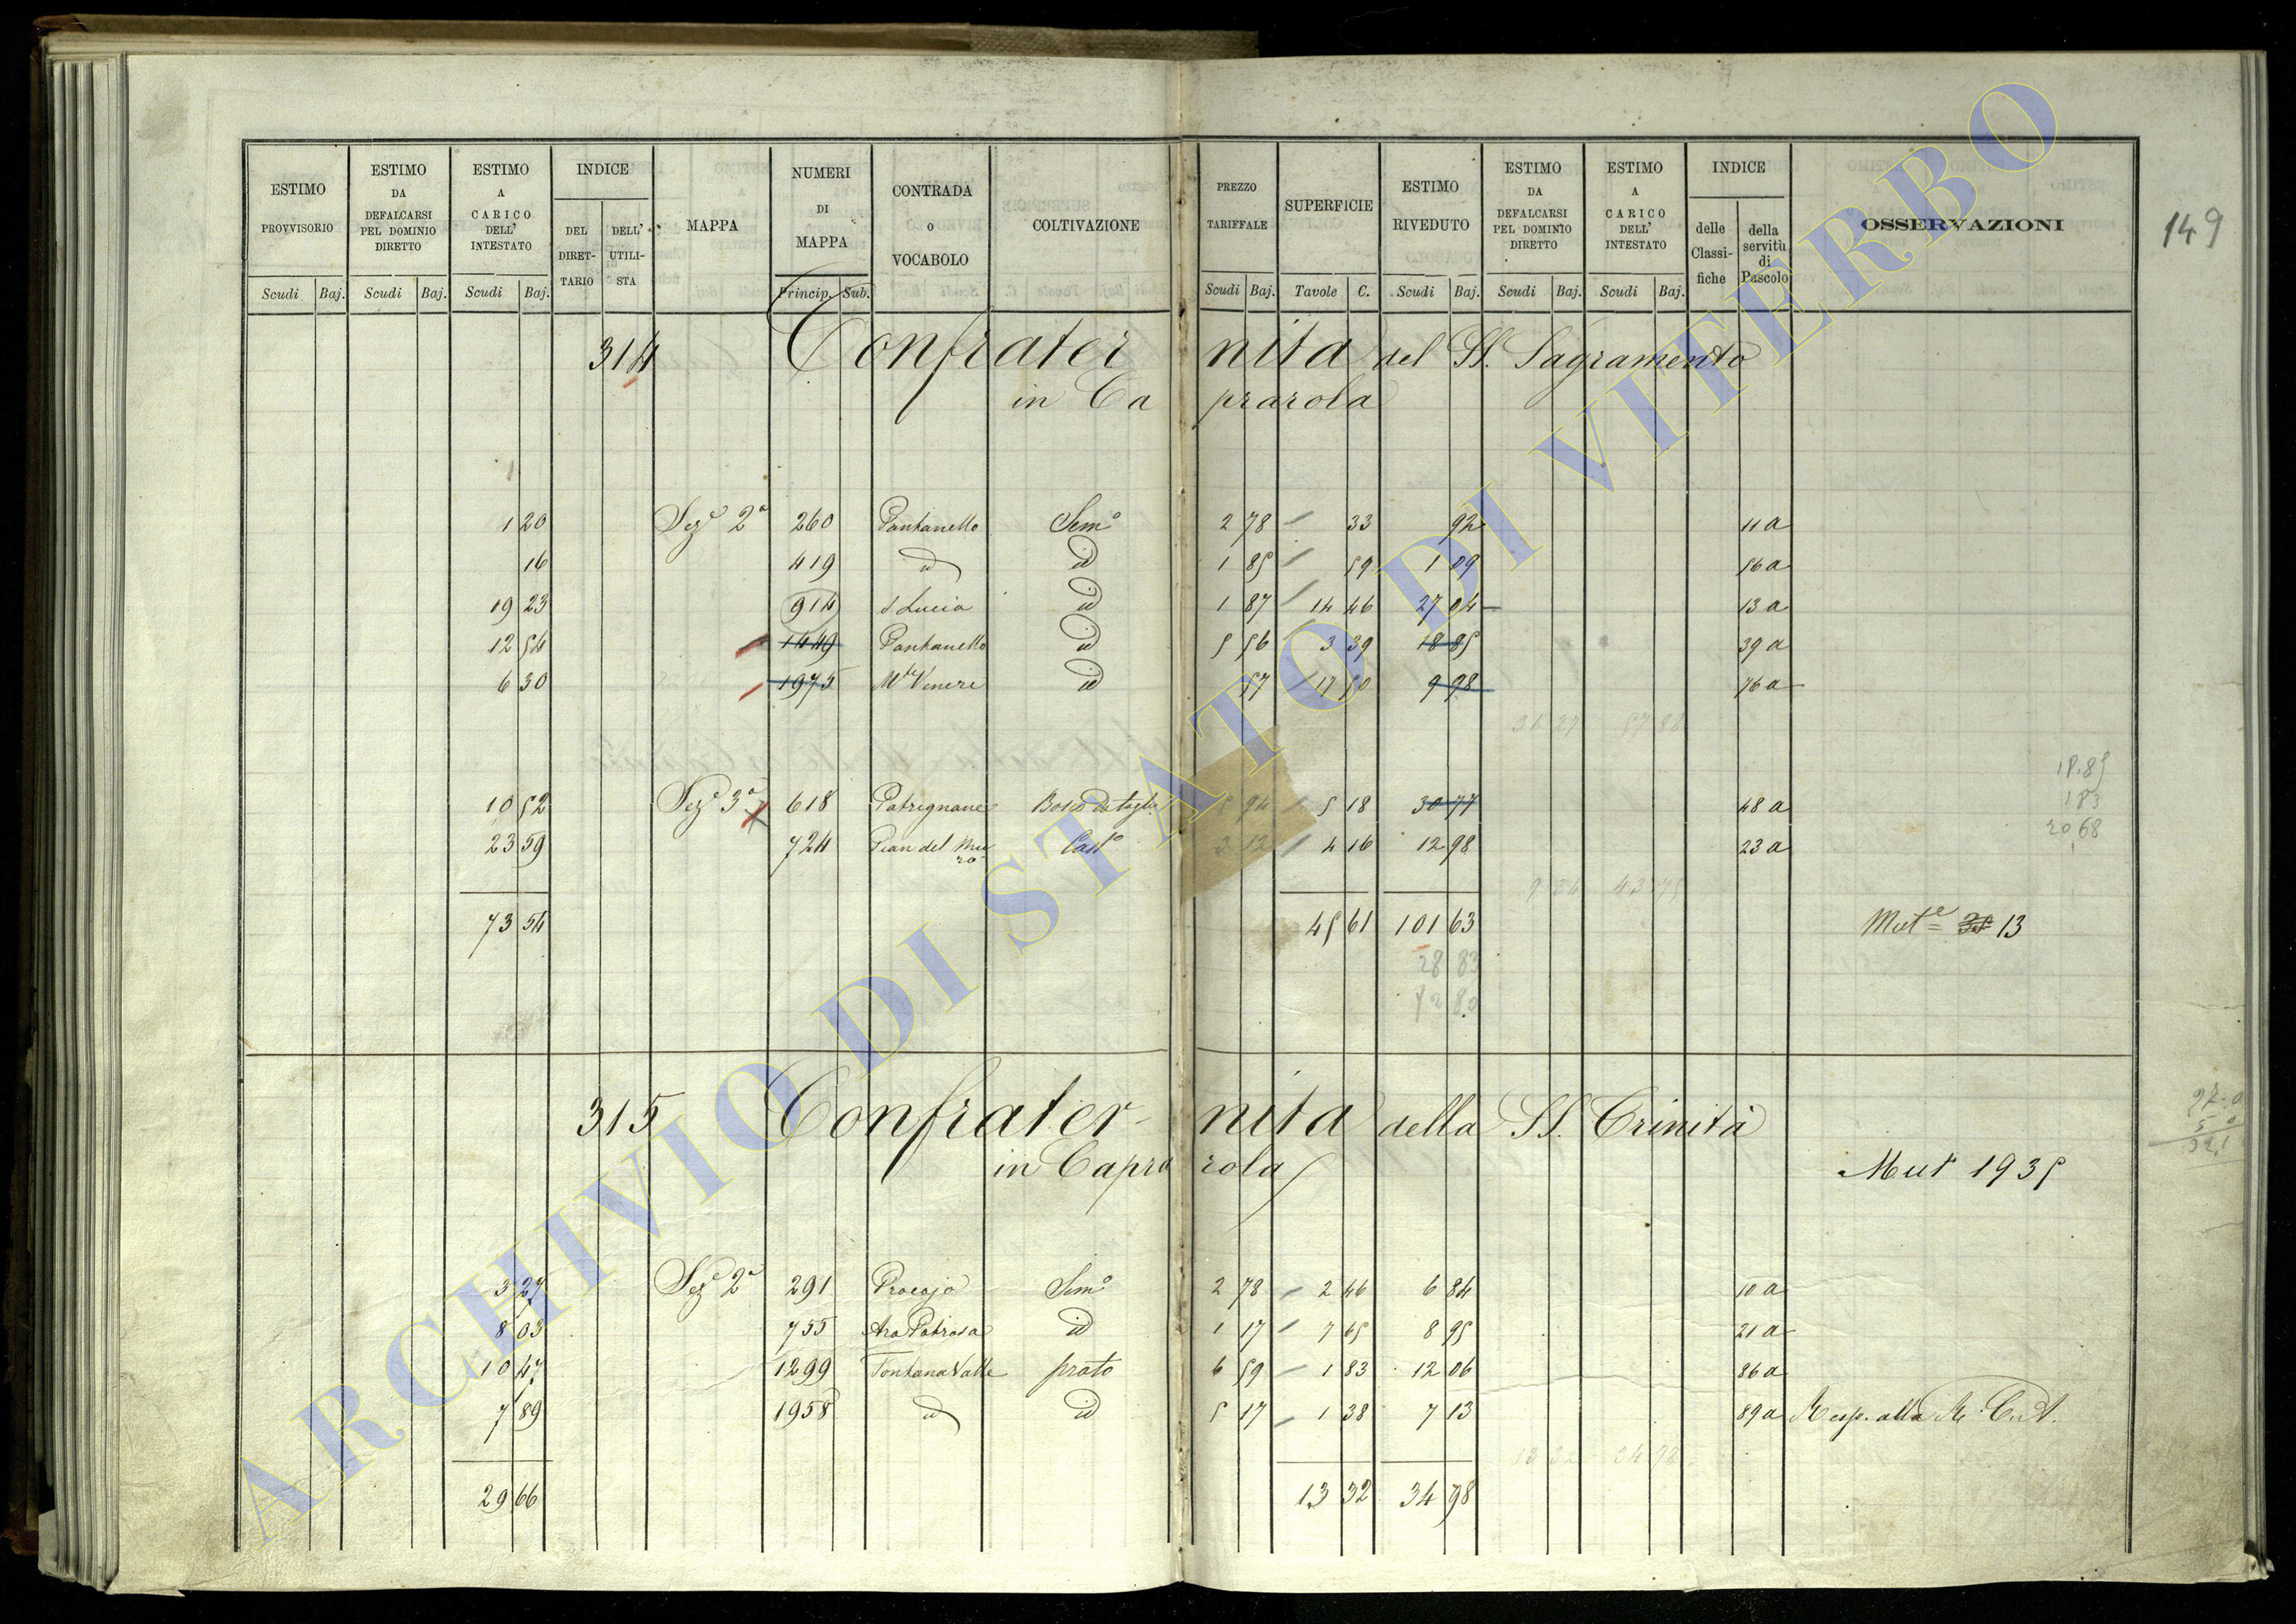 149
ESTIMO PROVVISORIO | ESTIMO DA DEFALCARSI PEL DOMINIO DIRETTO | ESTIMO A CARICO DELL' INTESTATO | INDICE | MAPPA | NUMERI DI MAPPA | CONTRADA o VOCABOLO | COLTIVAZIONE | PREZZO TARIFFALE | SUPERFICIE | ESTIMO RIVEDUTO | ESTIMO DA DEFALCARSI PEL DOMINIO DIRETTO | ESTIMO A CARICO DELL' INTESTATO | INDICE | OSSERVAZIONI
DEL DIRETTARIO | DELL' UTILISTA | delle Classifiche | della servitù di Pascolo
Scudi | Baj. | Scudi | Baj. | Scudi | Baj. | Princip. | Sub. | Scudi | Baj. | Tavole | C. | Scudi | Baj. | Scudi | Baj. | Scudi | Baj.
314 Confraternita del SS. Sagramento
in Caprarola
1 20 | Sez.e 2a | 260 | Pantanello | Sem.o | 2 78 | / 33 | 92 | 11 a
16 | 419 | id | id | 1 85 | / 59 | 1 09 | 56 a
19 23 | 914 | S Lucia | id | 1 87 | / 14 46 | 27 04 | 13 a
12 54 | 1449 | Pantanello | id | 5 56 | 3 39 | 18 85 | 39 a
6 30 | 1975 | Mte Venere | id | 57 | / 17 50 | 9 98 | 76 a
36 27 | 57 88
18.85
1 83
20 68
10 52 | Sez.e 3a | 618 | Patrignane | Bosco da taglio | 5 94 | / 5 18 | 30 77 | 48 a
23 59 | 724 | Pian del Muro | Cast.o | 3 12 | / 4 16 | 12 98 | 23 a
9 34 | 43 75
73 54 | 45 61 | 101 63 | Mut.e = 13
28 83
72 80
315 Confraternita della SS. Trinità
in Caprarola
Mut 1935
3 27 | Sez.e 2a | 291 | Procojo | Sem.o | 2 78 | / 2 46 | 6 84 | 10 a
8 03 | 755 | Ara Petrosa | id | 1 17 | / 7 65 | 8 95 | 21 a
10 47 | 1299 | Fontana Valle | prato | 6 59 | / 1 83 | 12 06 | 86 a
7 89 | 1958 | id | id | 5 17 | / 1 38 | 7 13 | 89 a | Resp. alla R. C. A.
13 32 | 34 98
29 66 | 13 32 | 34 98
ARCHIVIO DI STATO DI VITERBO